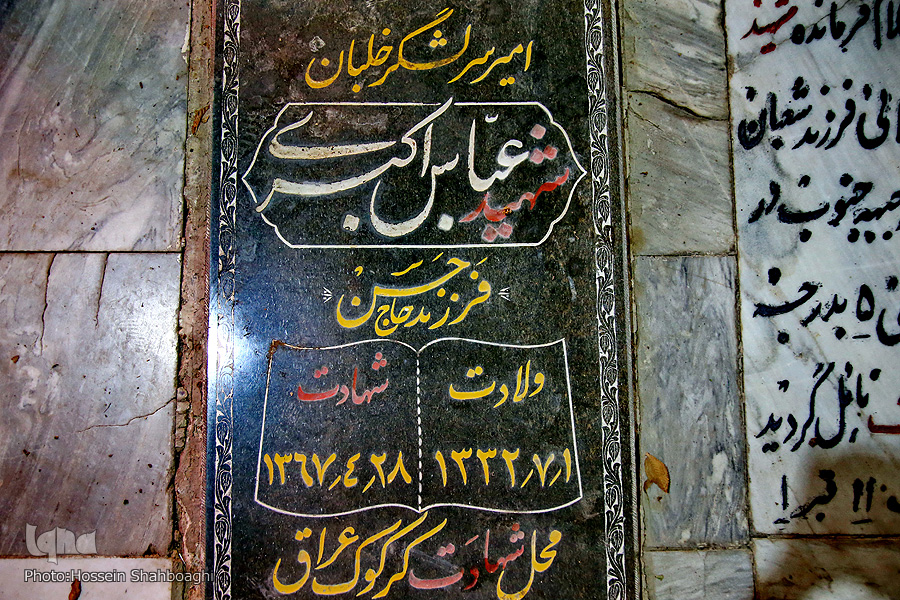 امیر سرلشگر خلبان
شهید عبّاس اکبری
فرزند حاج حسن
ولادت
۱۳۳۲٫۷٫۱
شهادت
۱۳۶۷٫٤٫۲۸
محل شهادت کرکوک عراق
فرمانده شهید
نی فرزند شعبان
جبهه جنوب در
۵ بدرجه
نائل گردید
۱۱ قبر ۱
iqna
Photo:Hossein Shahboaghi